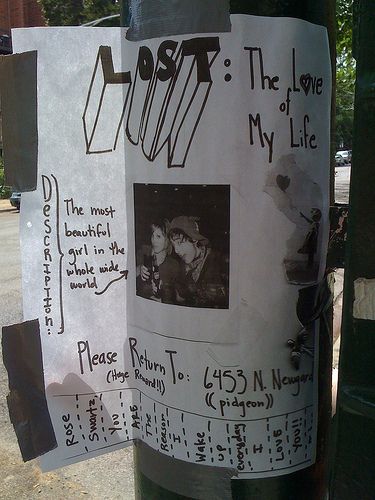 LOST: The Love
of
My Life
DESCRIPTION:
The most
beautiful
girl in the
whole wide
world
Please Return To: 6453 N. Newgard
(Huge Reward!!) ((pidgeon))
Rose
Swartz
You
ARE
The
Reason
I
Wake
up
everyday
I
LOVE
YOU!!